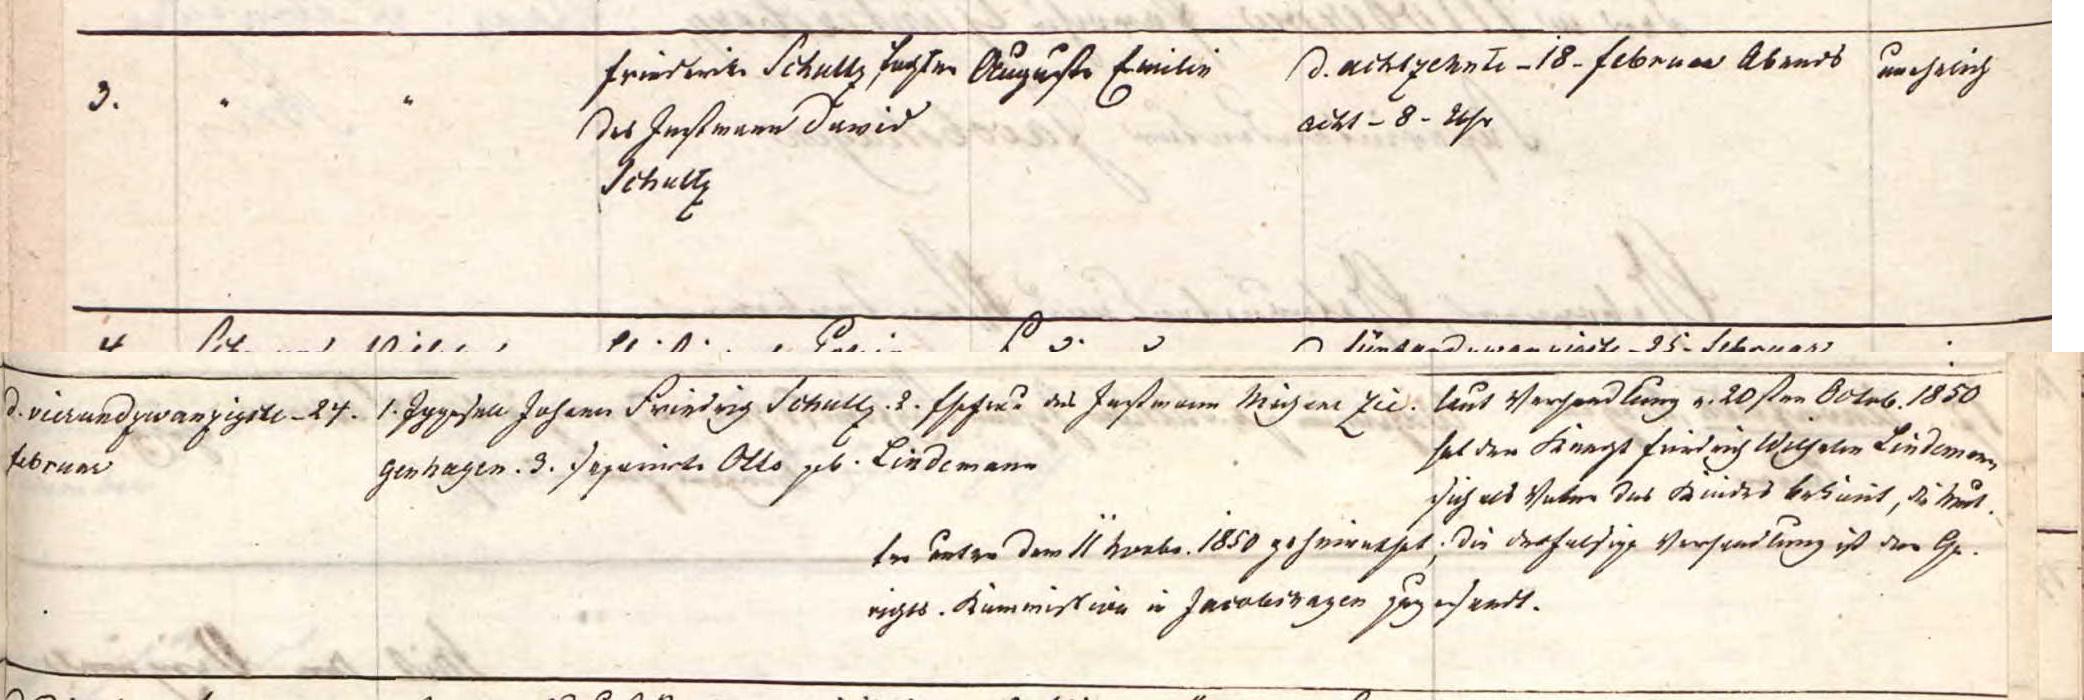 3. " " Friederike Schultz, Tochter Auguste Emilie d. achtzehnte - 18 - Februar Abends unehelich
des Instmann David acht - 8 - Uhr
Schultz
4.
d. vierundzwanzigste - 24. 1. Junggesell Johann Friedrig Schultz. 2. Ehefrau des Instmann Zie. laut Verhandlung v. 20sten Octob. 1850
Februar genhagen. 3. separirte Otto geb. Lindemann hat der Knecht Friedrich Wilhelm Lindemann
sich als Vater des Kindes bekannt, die Mut.
ter unter dem 11 Novbr. 1850 geheirathet; die desfalsige Verhandlung ist der Ge.
richts. Kommission in Jacobshagen zugesandt.